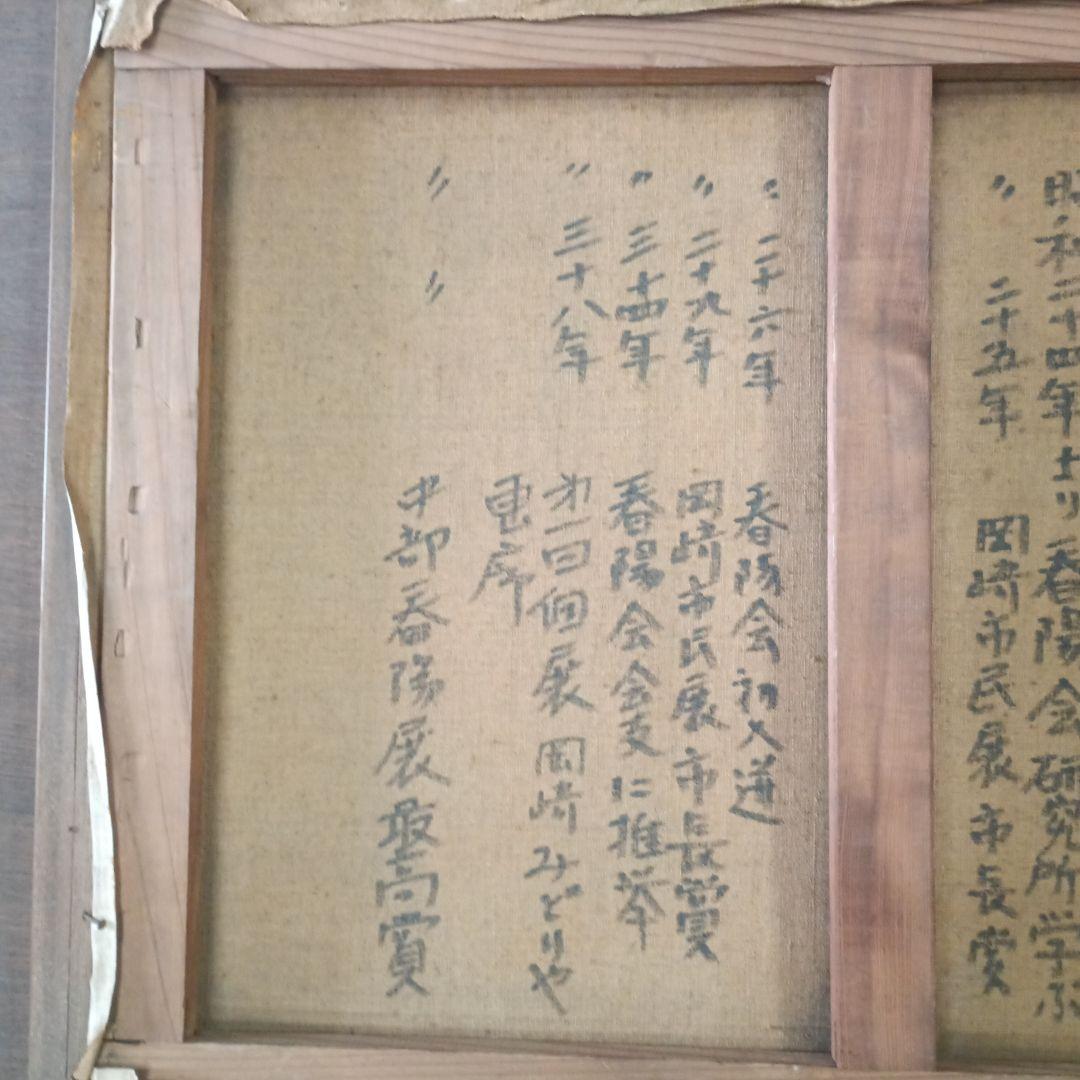 昭和二十四年より春陽会研究所学ぶ
〃 二十五年 岡崎市民展市長賞
〃 二十六年 春陽会初入選
〃 二十九年 岡崎市民展市長賞
〃 三十四年 春陽会会友に推挙
〃 三十八年 第一回個展 岡崎みどりや
画廊
〃 〃 中部春陽展最高賞